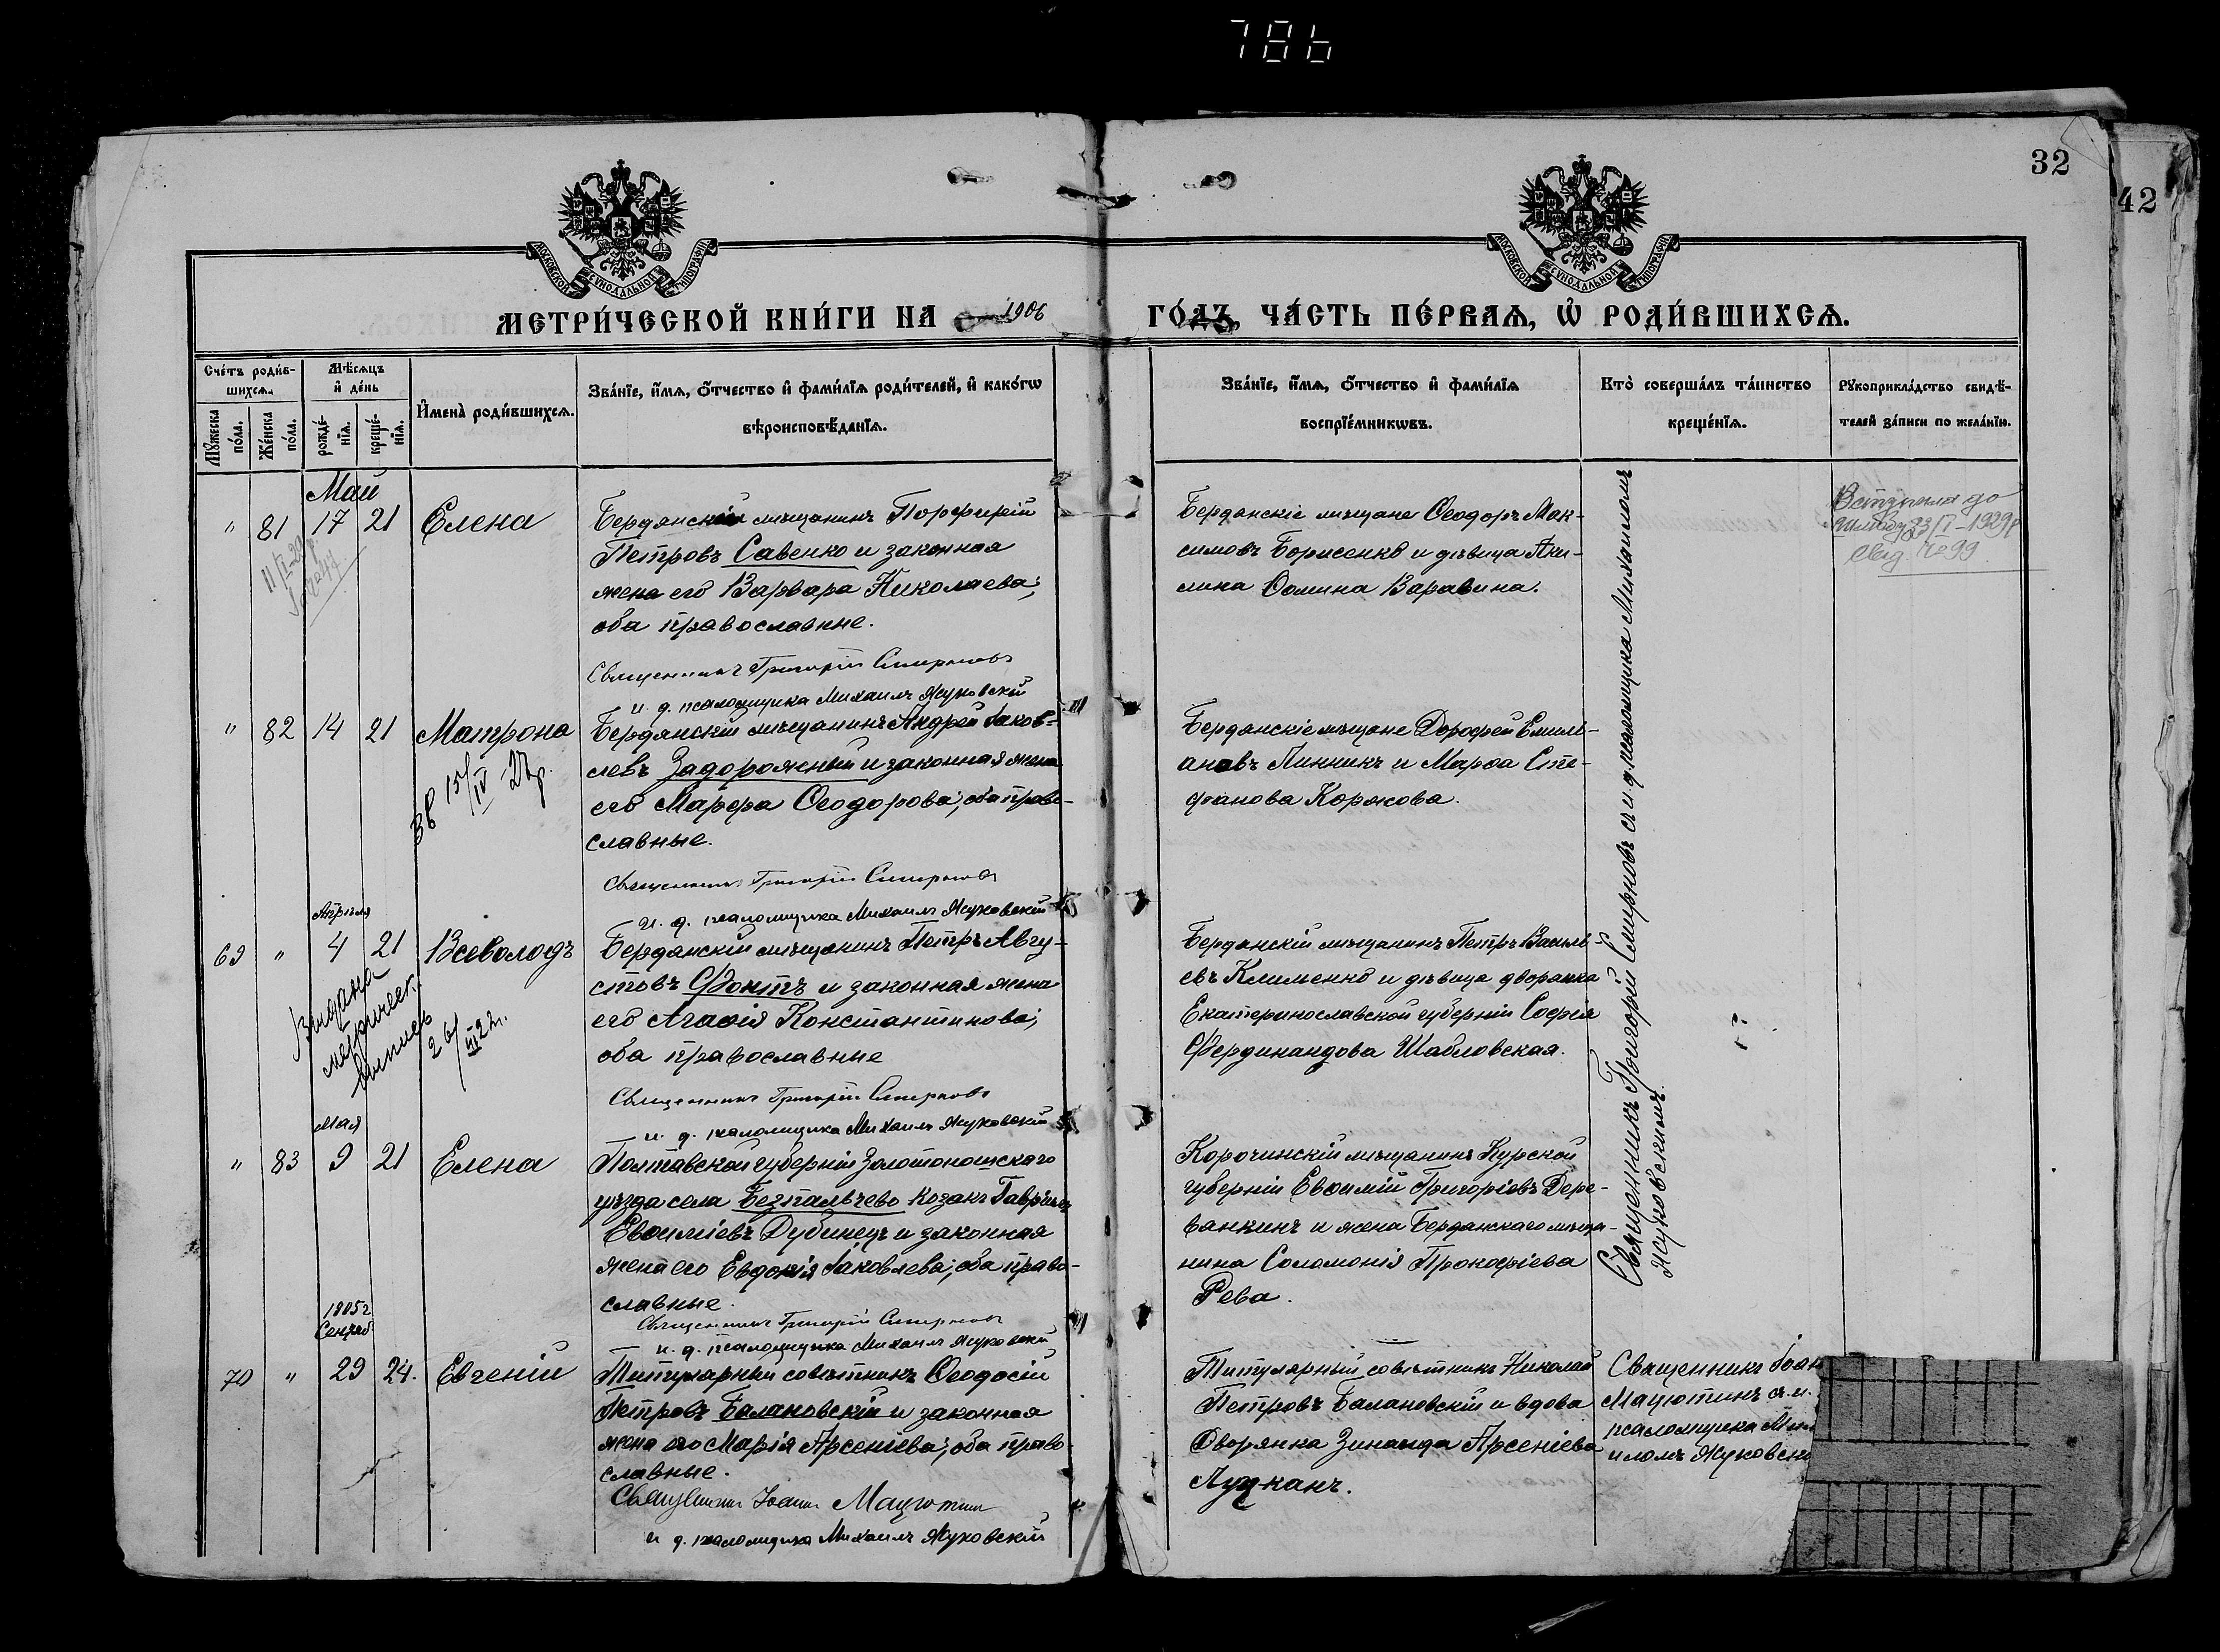 786
32
42
МОСКОВСКОЙ СѴНОДАЛЬНОЙ ТИПОГРАФІИ
МОСКОВСКОЙ СѴНОДАЛЬНОЙ ТИПОГРАФІИ
МЕТРИ́ЧЕСКОЙ КНИ́ГИ НА 1906
ГО́ДЪ, ЧА́СТЬ ПЕ́РВАѦ, Ѡ РОДИ́ВШИХСѦ.
Сче́тъ роди́в-
шихсѧ.
Мѣ́сѧцъ
и де́нь
Мꙋ́жеска
по́ла.
Же́нска
по́ла.
рожде́-
нїѧ.
креще́-
нїѧ.
И҆мена̀ роди́вшихсѧ.
Зва́нїе, и҆́мѧ, ѻ҆́тчество и҆ фами́лїѧ роди́телей, и҆ како́гѡ
вѣроисповѣ́данїѧ.
Зва́нїе, и҆́мѧ, ѻ҆́тчество и҆ фами́лїѧ
воспрїе́мникѡвъ.
Кто̀ соверша́лъ та́инство
креще́нїѧ.
Рꙋкоприкла́дство свидѣ́-
телей за́писи по жела́нїю.
Май
" 81 17 21 Елена
Бердянскій мѣщанинъ Порфирій
Петровъ Савенко и законная
жена его Варвара Николаева;
оба православные.
Священникъ Григорій Смирновъ
и. д. псаломщика Михаилъ Жуковскій
Бердянскіе мѣщане Ѳеодоръ Мак-
симовъ Борисенко и дѣвица Аки-
лина Ѳомина Варавина.
Вступила до
шлюбу 23/I-1929р
Свид. №99
" 82 14 21 Матрона
Зв 15/IV-27р.
Бердянскій мѣщанинъ Андрей Іаков-
левъ Задорожный и законная жена
его Марѳа Ѳеодорова; оба право-
славные.
Священникъ Григорій Смирновъ
и. д. псаломщика Михаилъ Жуковскій
Бердянскіе мѣщане Дороѳей Емель-
ановъ Линникъ и Марѳа Сте-
фанова Коржова.
Апрѣля
69 " 4 21 Всеволодъ
Выдана
метрическ.
выпись
26/III 22г.
Бердянскій мѣщанинъ Петръ Авгу-
стовъ Фоктъ и законная жена
его Агаѳія Константинова;
оба православные
Священникъ Григорій Смирновъ
и. д. псаломщика Михаилъ Жуковскій
Бердянскій мѣщанинъ Петръ Василь-
евъ Клименко и дѣвица дворянка
Екатеринославской губерніи Софія
Фердинандова Шабловская.
Мая
" 83 9 21 Елена
Полтавской губерніи Золотоношскаго
уѣзда села Безпальчево козакъ Гавріилъ
Евѳиміевъ Дубинецъ и законная
жена его Евдокія Іаковлева; оба право-
славные.
Священникъ Григорій Смирновъ
и. д. псаломщика Михаилъ Жуковскій
Корочинскій мѣщанинъ Курской
губерніи Евѳимій Григоріевъ Дере-
вянкинъ и жена Бердянскаго мѣща-
нина Соломонія Прокофіева
Рева.
Священникъ Григорій Смирновъ съ и. д. псаломщика Михаиломъ
Жуковскимъ.
1905г
Сентяб.
70 " 29 24. Евгеній
Титулярный совѣтникъ Ѳеодосій
Петровъ Балановскій и законная
жена его Марія Арсеніева; оба право-
славные.
Священникъ Іоаннъ Мацютинъ
и д. псаломщика Михаилъ Жуковскій
Титулярный совѣтникъ Николай
Петровъ Балановскій и вдова
Дворянка Зинаида Арсеніева
Луцканъ.
Священникъ Іоан
Мацютинъ съ и.
псаломщика Ми
иломъ Жуковски